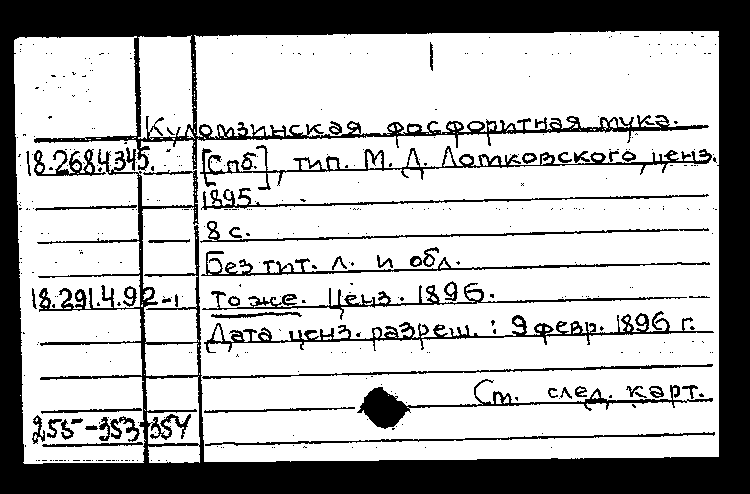 Куломзинская фосфоритная мука.
18.268.4.345. [Спб.], тип. М. Д. Ломковского, ценз.
1895.
8 с.
Без тит. л. и обл.
18.291.4.92-1 То же. Ценз. 1896.
Дата ценз. разреш.: 9 февр. 1896 г.
См. след. карт.
255-353-354